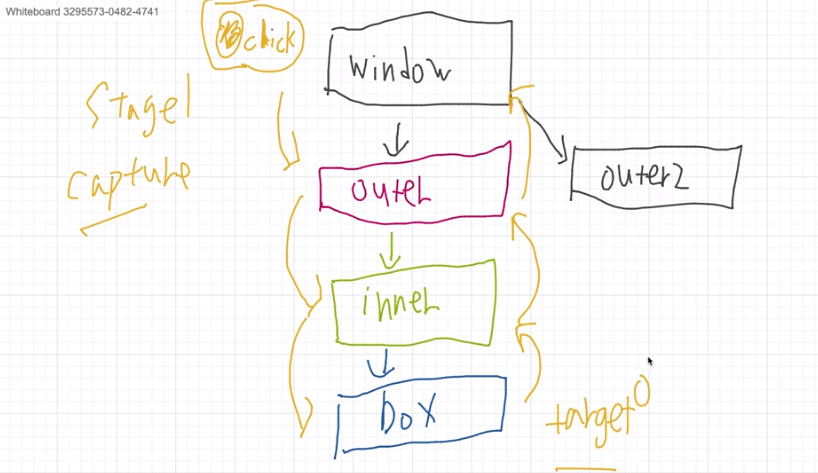 Whiteboard 3295573-0482-4741
click
window
Stage1
capture
outer
outer2
inner
box
target